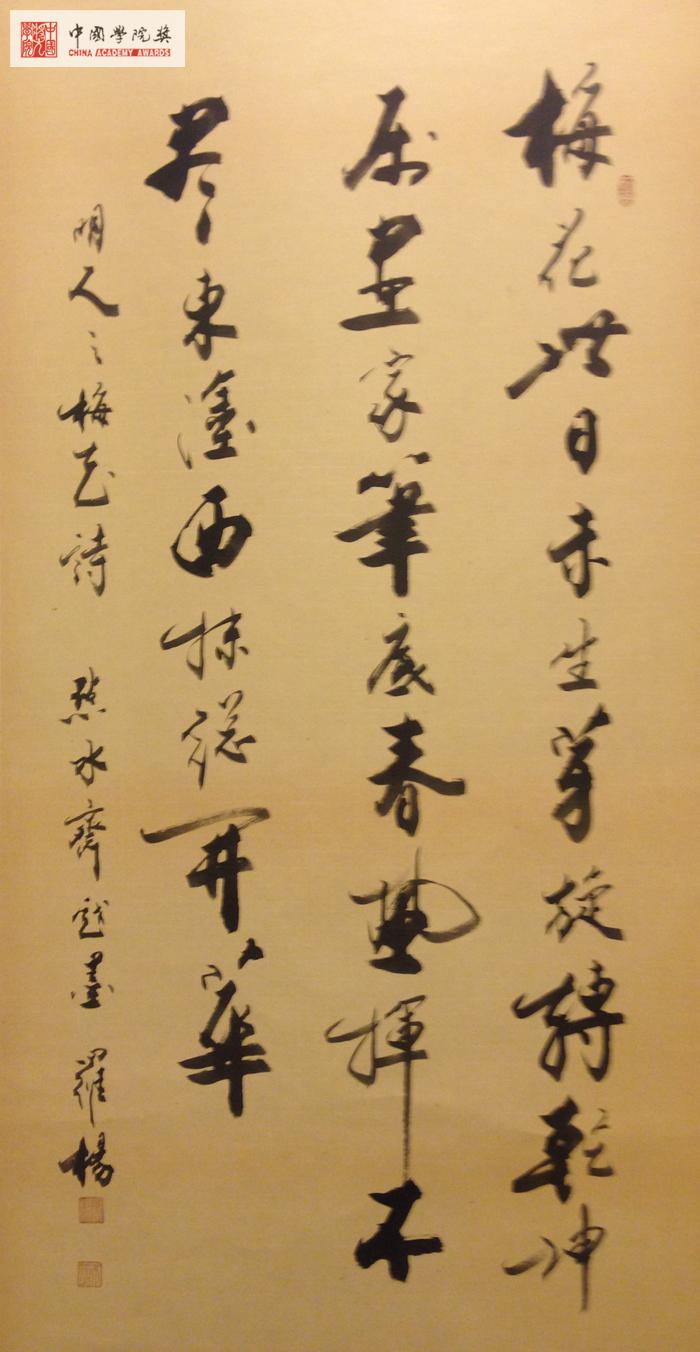 中國學院獎
CHINA ACADEMY AWARDS
梅花此日未生芽旋轉乾坤
属畫家筆底春風揮不
尽東塗西抹總開華
明人之梅花詩 點水齋戲墨 羅楊